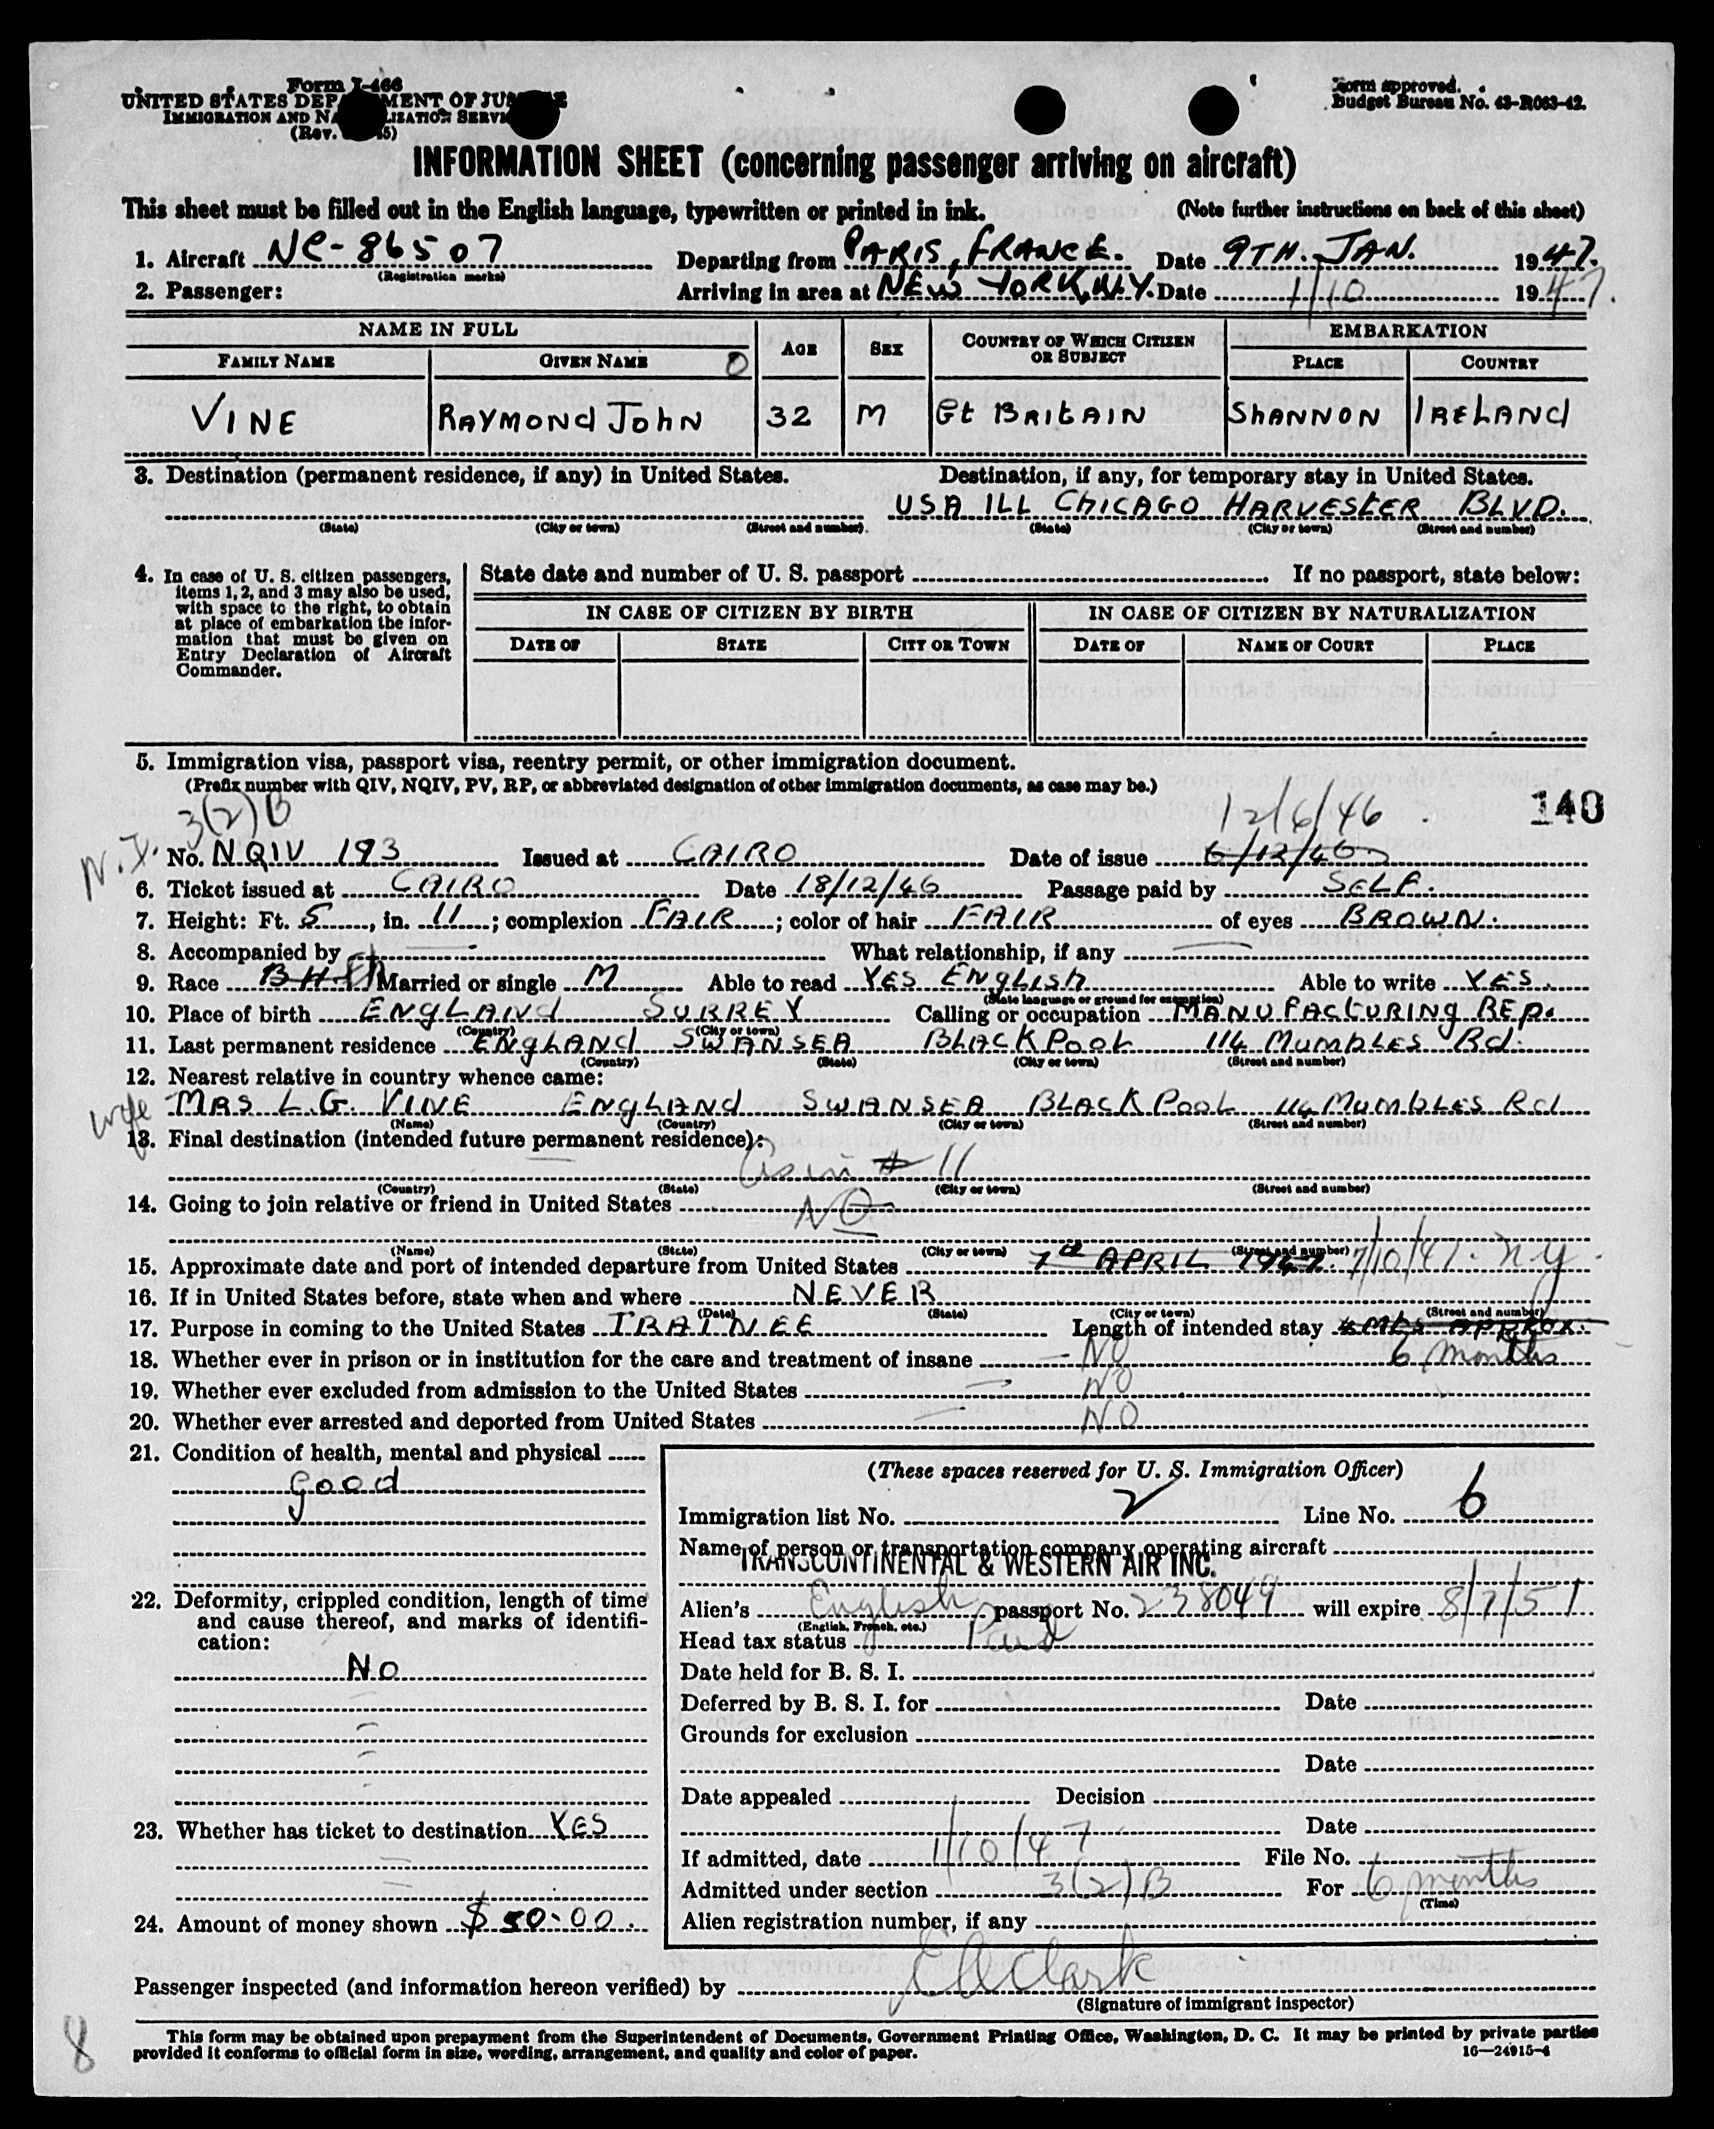 Form I-466
UNITED STATES DEPARTMENT OF JUSTICE
IMMIGRATION AND NATURALIZATION SERVICE
(Rev. 45)
Form approved.
Budget Bureau No. 43-R063-42.
INFORMATION SHEET (concerning passenger arriving on aircraft)
This sheet must be filled out in the English language, typewritten or printed in ink. (Note further instructions on back of this sheet)
1. Aircraft NC-86507 Departing from PARIS, FRANCE. Date 9TH. JAN. 1947.
(Registration marks)
2. Passenger: Arriving in area at NEW YORK, N.Y. Date 1/10 1947.
NAME IN FULL AGE SEX COUNTRY OF WHICH CITIZEN OR SUBJECT EMBARKATION
FAMILY NAME GIVEN NAME 0 PLACE COUNTRY
VINE RAYMOND JOHN 32 M Gt BRITAIN SHANNON IRELAND
3. Destination (permanent residence, if any) in United States. Destination, if any, for temporary stay in United States.
USA ILL CHICAGO HARVESTER BLVD.
(State) (City or town) (Street and number). (State) (City or town) (Street and number)
4. In case of U. S. citizen passengers, items 1, 2, and 3 may also be used, with space to the right, to obtain at place of embarkation the information that must be given on Entry Declaration of Aircraft Commander.
State date and number of U. S. passport If no passport, state below:
IN CASE OF CITIZEN BY BIRTH IN CASE OF CITIZEN BY NATURALIZATION
DATE OF STATE CITY OR TOWN DATE OF NAME OF COURT PLACE
5. Immigration visa, passport visa, reentry permit, or other immigration document.
(Prefix number with QIV, NQIV, PV, RP, or abbreviated designation of other immigration documents, as case may be.)
3(2)B 12/6/46 140
No. NQIV 193 Issued at CAIRO Date of issue 6/12/46
6. Ticket issued at CAIRO Date 18/12/46 Passage paid by SELF.
7. Height: Ft. 5, in. 11; complexion FAIR; color of hair FAIR of eyes BROWN.
8. Accompanied by What relationship, if any
9. Race Married or single M Able to read YES ENGLISH Able to write YES.
(State language or ground for exemption)
10. Place of birth ENGLAND SURREY Calling or occupation MANUFACTURING REP.
(Country) (City or town)
11. Last permanent residence ENGLAND SWANSEA BLACKPOOL 114 MUMBLES Rd.
(Country) (State) (City or town) (Street and number)
12. Nearest relative in country whence came:
wife MRS L.G. VINE ENGLAND SWANSEA BLACKPOOL 114 MUMBLES Rd
(Name) (Country) (City or town) (Street and number)
13. Final destination (intended future permanent residence):
as in # 11
(Country) (State) (City or town) (Street and number)
14. Going to join relative or friend in United States NO
(Name) (State) (City or town) (Street and number)
15. Approximate date and port of intended departure from United States 7th APRIL 1947. 7/10/47. N.Y.
16. If in United States before, state when and where NEVER
(Date) (State) (City or town) (Street and number)
17. Purpose in coming to the United States TRAINEE Length of intended stay MTS APPROX.
18. Whether ever in prison or in institution for the care and treatment of insane NO 6 months
19. Whether ever excluded from admission to the United States NO
20. Whether ever arrested and deported from United States NO
21. Condition of health, mental and physical
Good
22. Deformity, crippled condition, length of time and cause thereof, and marks of identification:
No
23. Whether has ticket to destination YES
24. Amount of money shown $50.00.
(These spaces reserved for U. S. Immigration Officer)
Immigration list No. 2 Line No. 6
Name of person or transportation company operating aircraft
TRANSCONTINENTAL & WESTERN AIR INC.
Alien's English passport No. 238049 will expire 8/7/51
(English, French, etc.)
Head tax status Paid
Date held for B. S. I.
Deferred by B. S. I. for Date
Grounds for exclusion
Date
Date appealed Decision
Date
If admitted, date 1/10/47 File No.
Admitted under section 3(2)B For 6 months
(Time)
Alien registration number, if any
Passenger inspected (and information hereon verified) by Clark
(Signature of immigrant inspector)
8
This form may be obtained upon prepayment from the Superintendent of Documents, Government Printing Office, Washington, D. C. It may be printed by private parties
provided it conforms to official form in size, wording, arrangement, and quality and color of paper.
16—24915-4